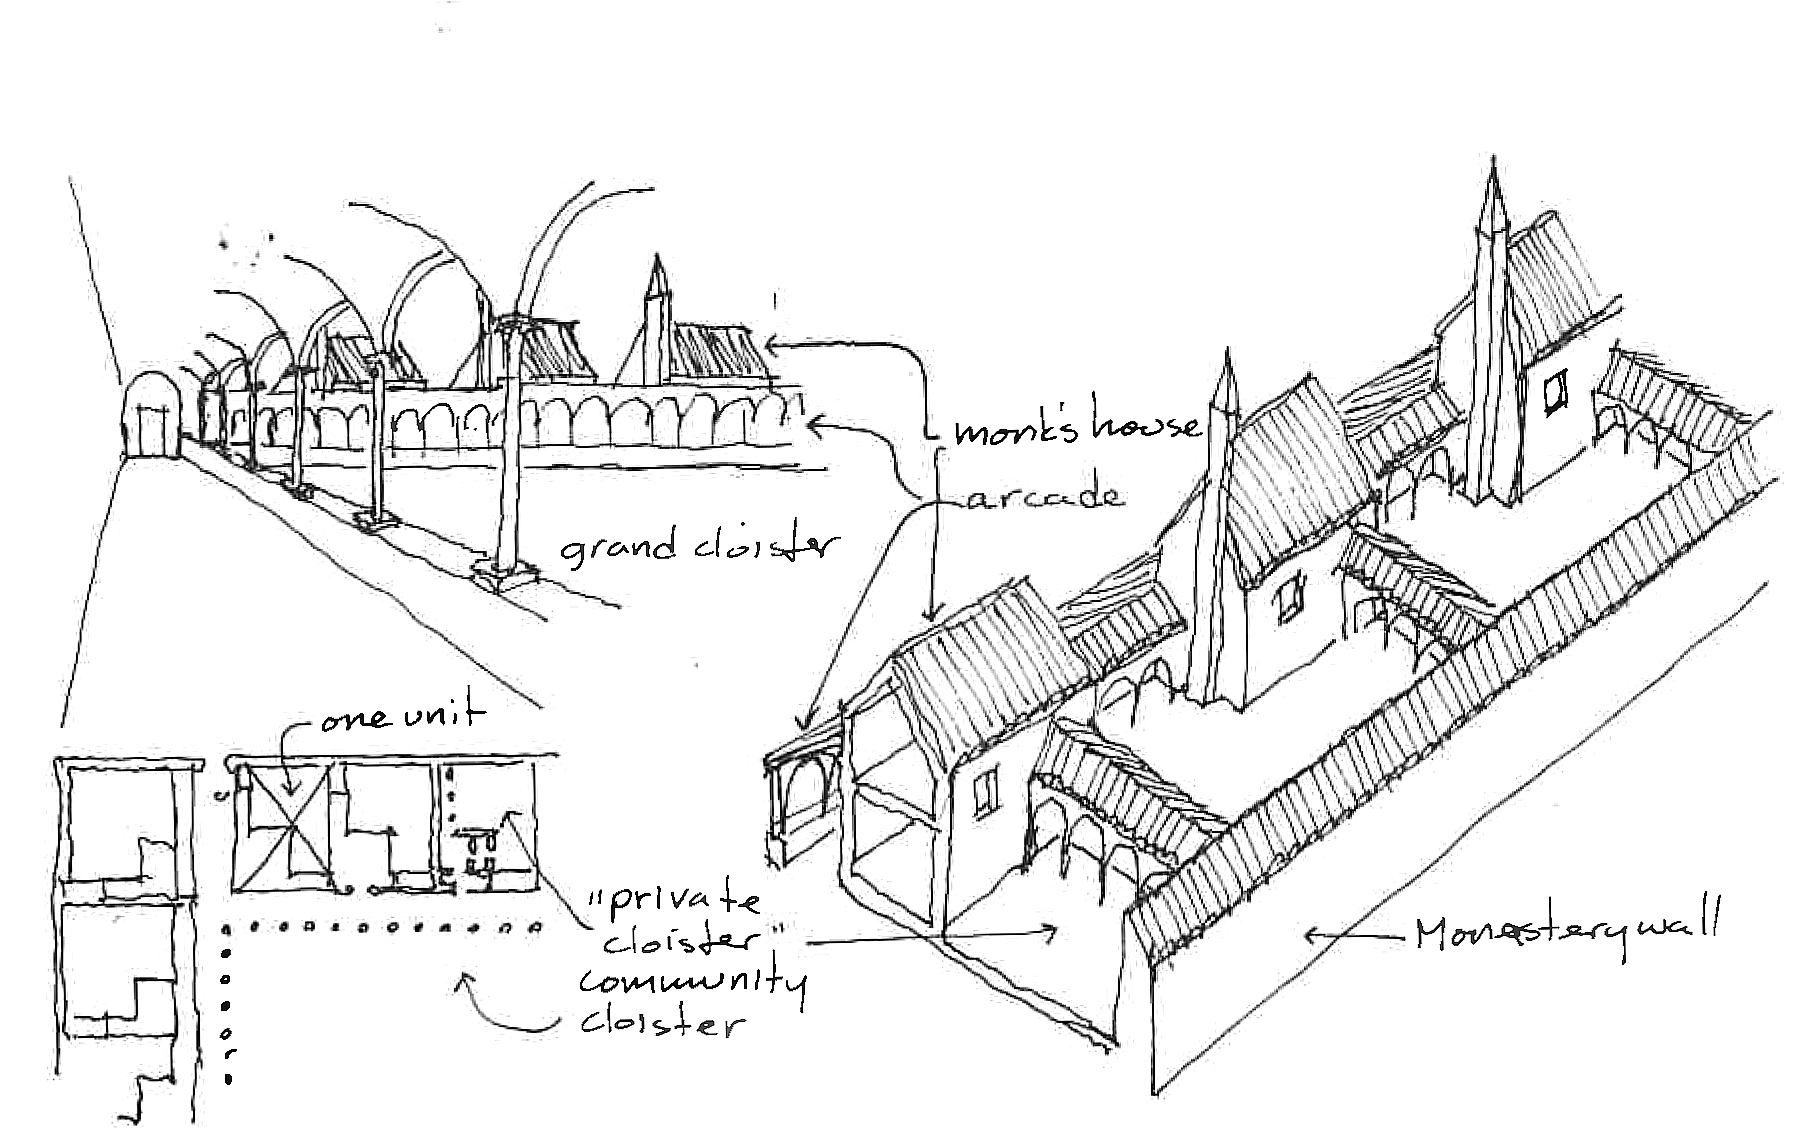 monk's house
arcade
grand cloister
one unit
"private
cloister"
community
cloister
Monastery wall